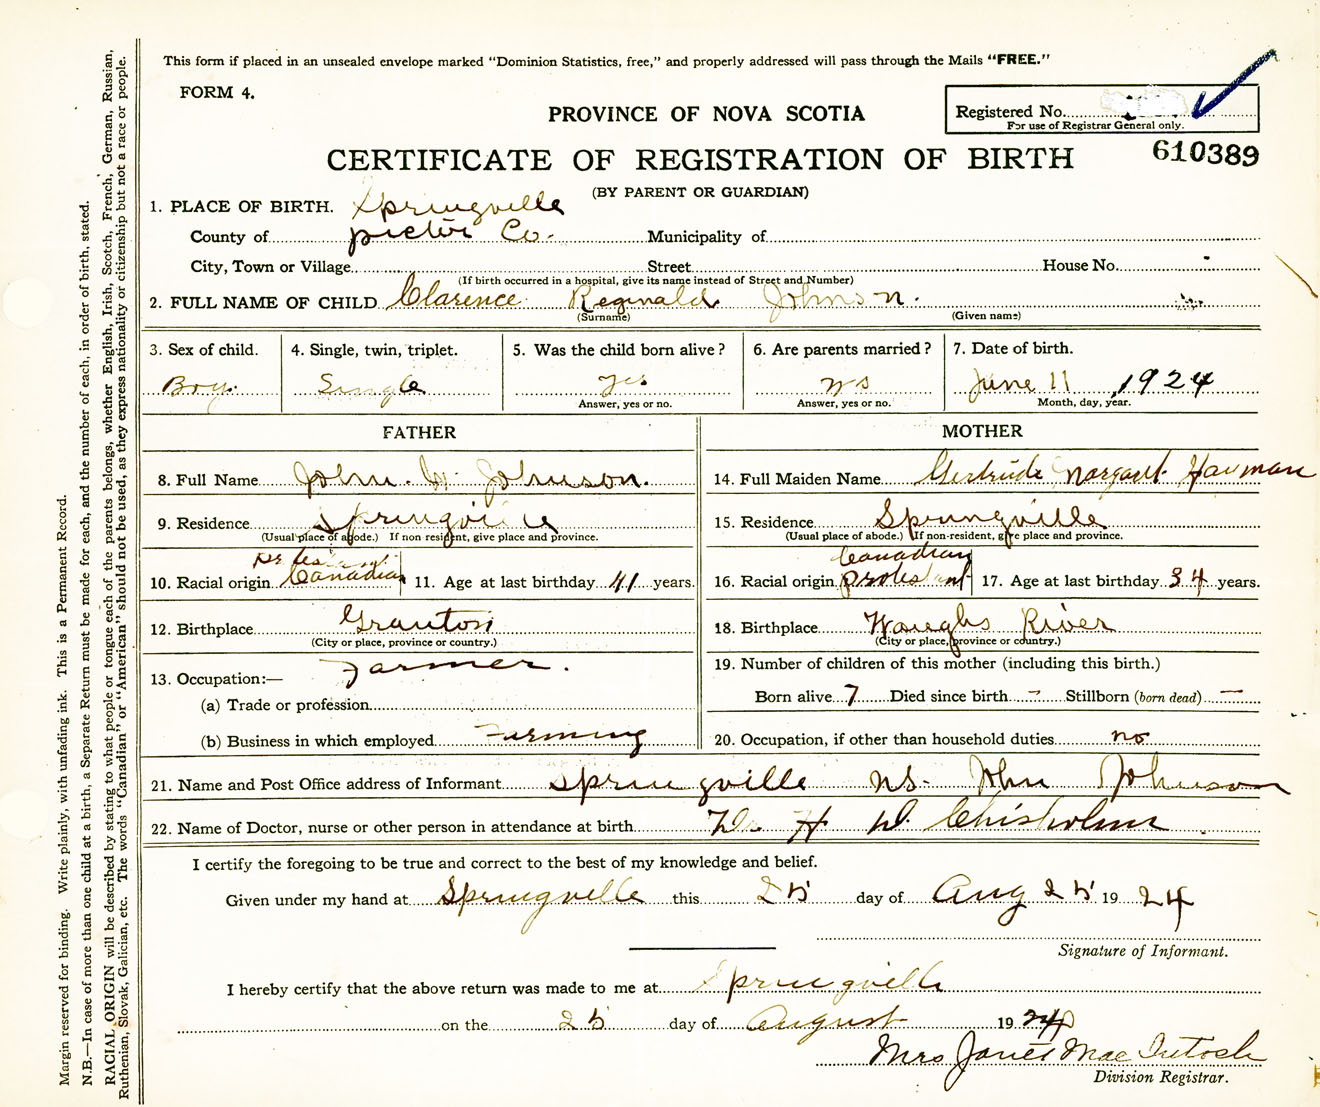 This form if placed in an unsealed envelope marked "Dominion Statistics, free," and properly addressed will pass through the Mails "FREE."
FORM 4.
PROVINCE OF NOVA SCOTIA
Registered No.
For use of Registrar General only.
CERTIFICATE OF REGISTRATION OF BIRTH
610389
(BY PARENT OR GUARDIAN)
1. PLACE OF BIRTH. Springville
County of Pictou Co. Municipality of
City, Town or Village Street House No.
(If birth occurred in a hospital, give its name instead of Street and Number)
2. FULL NAME OF CHILD Clarence Reginald Johnson.
(Surname) (Given name)
3. Sex of child. 4. Single, twin, triplet. 5. Was the child born alive? 6. Are parents married? 7. Date of birth.
Boy. Single yes June 11 1924
Answer, yes or no. Answer, yes or no. Month, day, year.
FATHER MOTHER
8. Full Name John Johnson.
14. Full Maiden Name Gertrude Margaret
9. Residence Springville
(Usual place of abode.) If non resident, give place and province.
15. Residence Springville
(Usual place of abode.) If non-resident, give place and province.
10. Racial origin Canadian 11. Age at last birthday 41 years.
Canadian
16. Racial origin protestant 17. Age at last birthday 34 years.
12. Birthplace Granton
(City or place, province or country.)
18. Birthplace Waughs River
(City or place, province or country.)
Farmer.
13. Occupation:—
(a) Trade or profession
(b) Business in which employed Farming
19. Number of children of this mother (including this birth.)
Born alive 7 Died since birth - Stillborn (born dead) -
20. Occupation, if other than household duties no
21. Name and Post Office address of Informant Springville NS. John Johnson
22. Name of Doctor, nurse or other person in attendance at birth Dr H W. Chisholm
I certify the foregoing to be true and correct to the best of my knowledge and belief.
Given under my hand at Springville this 25 day of Aug 25 1924
Signature of Informant.
I hereby certify that the above return was made to me at Springville
on the 25 day of August 1924
Mrs Janet MacIntosh
Division Registrar.
Margin reserved for binding. Write plainly, with unfading ink. This is a Permanent Record.
N.B.—In case of more than one child at a birth, a Separate Return must be made for each, and the number of each, in order of birth, stated.
RACIAL ORIGIN will be described by stating to what people or tongue each of the parents belongs, whether English, Irish, Scotch, French, German, Russian,
Ruthenian, Slovak, Galician, etc. The words "Canadian" or "American" should not be used, as they express nationality or citizenship but not a race or people.